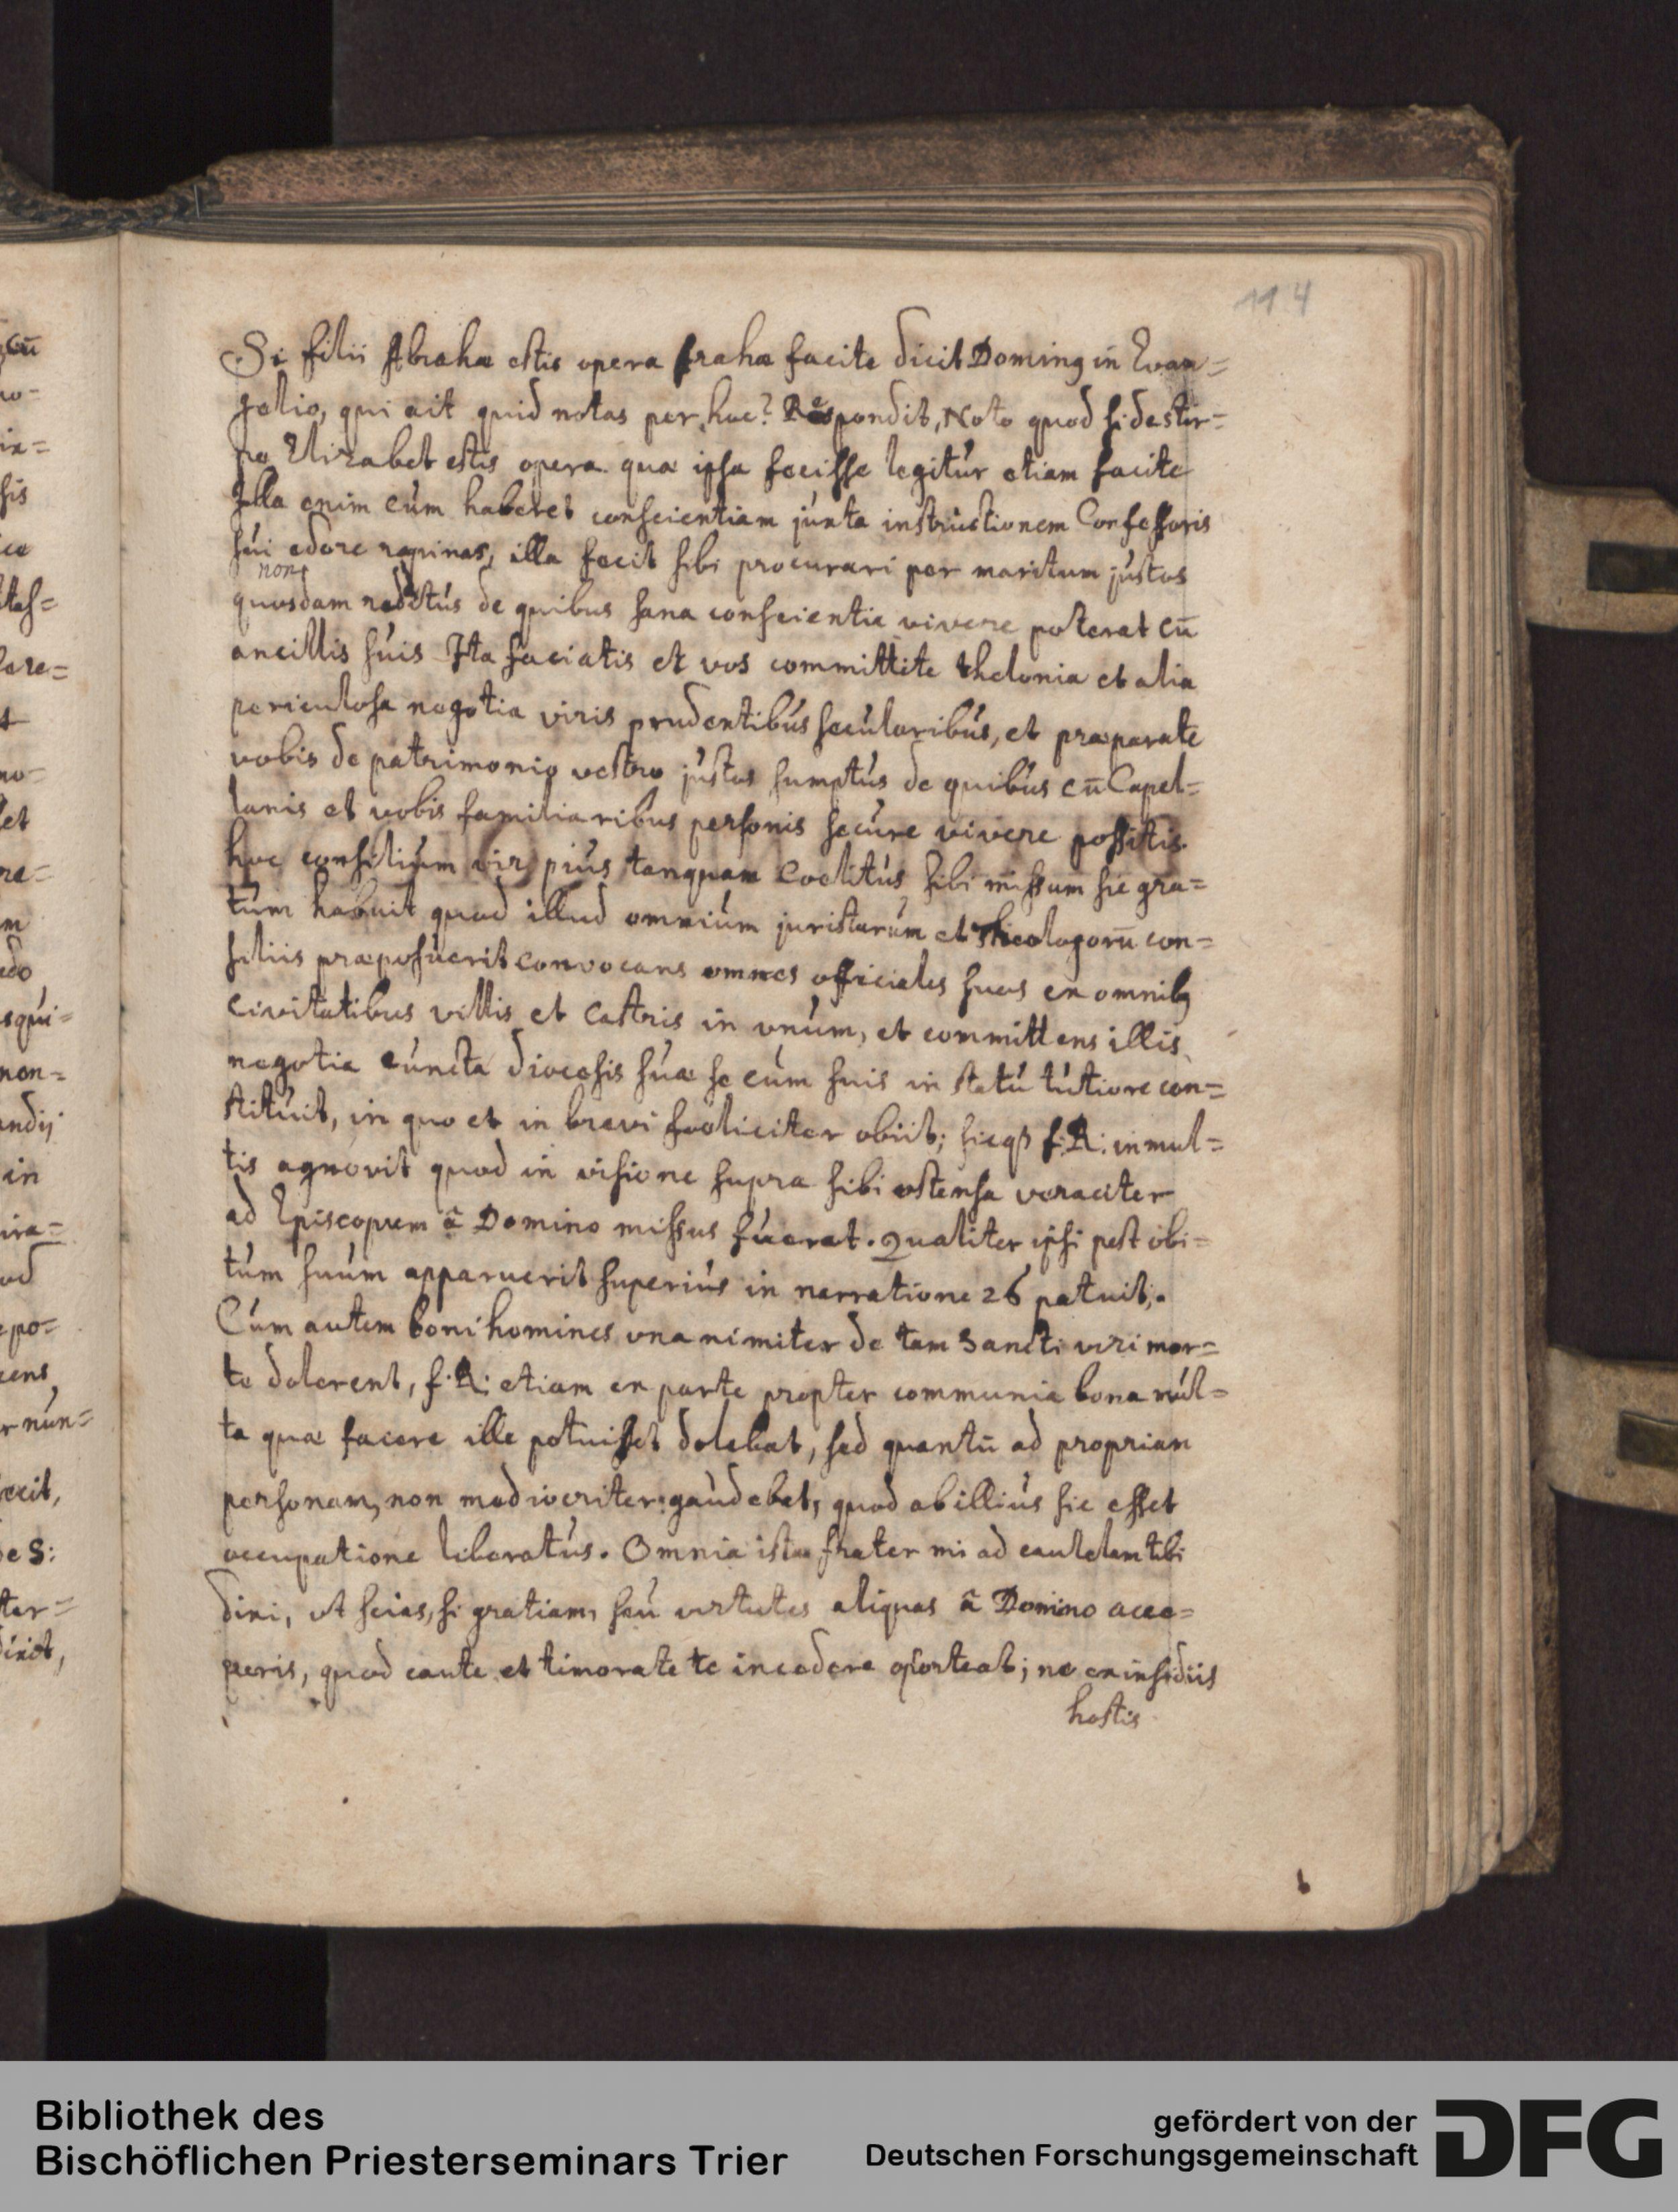 114
Si filii Abrahæ estis opera Abrahæ facite dicit Dominꝰ in Evan=
gelio, qui ait quid notas per hoc? Respondit, Noto quod si de stir=
pe Elizabet estis opera quæ ipsa fecisse legitúr etiam facite
Illa enim cúm haberet conscientiam júxta instrúctionem Confessoris
súi edere rapinas, illa fecit sibi procurari per maritum jústos
non
quosdam redditús de quibus sana conscientia vivere poterat cū
ancillis súis Ita faciatis et vos committite thelonia et alia
periculosa negotia viris prudentibús secúlaribús, et præparate
vobis de patrimonio vestro jústos sumptús de quibús cū Capel=
lanis et vobis familiaribus personis secúre vivere possitis.
hoc consiliúm vir piús tanquam Coelitús sibi missum sic gra=
túm habuit quod illud omniúm juristarúm et Theologorū con=
siliis præposúerit convocans omnes officiales suos ex omnibꝫ
Civitatibus villis et Castris in vnúm, et committens illis
negotia cúncta diocesis súæ se cúm suis in statú tútiore con=
stitúit, in quo et in brevi foeliciter obiit; sicqꝫ f: R: in mul=
tis agnovit quod in visione supra sibi ostensa veraciter
ad Episcopum â Domino missus fúerat. Qualiter ipsi post obi=
túm suúm apparuerit superiús in narratione 26 patuit;.
Cúm autem boni homines vnanimiter de tam Sancti viri mor=
te dolerent, f: R: etiam ex parte propter communia bona múl=
ta quæ facere ille potuisset dolebat, sed quantū ad propriam
personam, non mediocriter gaúdebat, quod ab illiús sic esset
occupatione liberatús. Omnia ista frater mi ad cautelam tibi
dixi, út scias, si gratiam, seú virtutes aliquas â Domino acce=
peris, quod caute et timorate te incedere oporteat; ne ex insidiis
hostis
Bibliothek des
Bischöflichen Priesterseminars Trier
gefördert von der
Deutschen Forschungsgemeinschaft
DFG